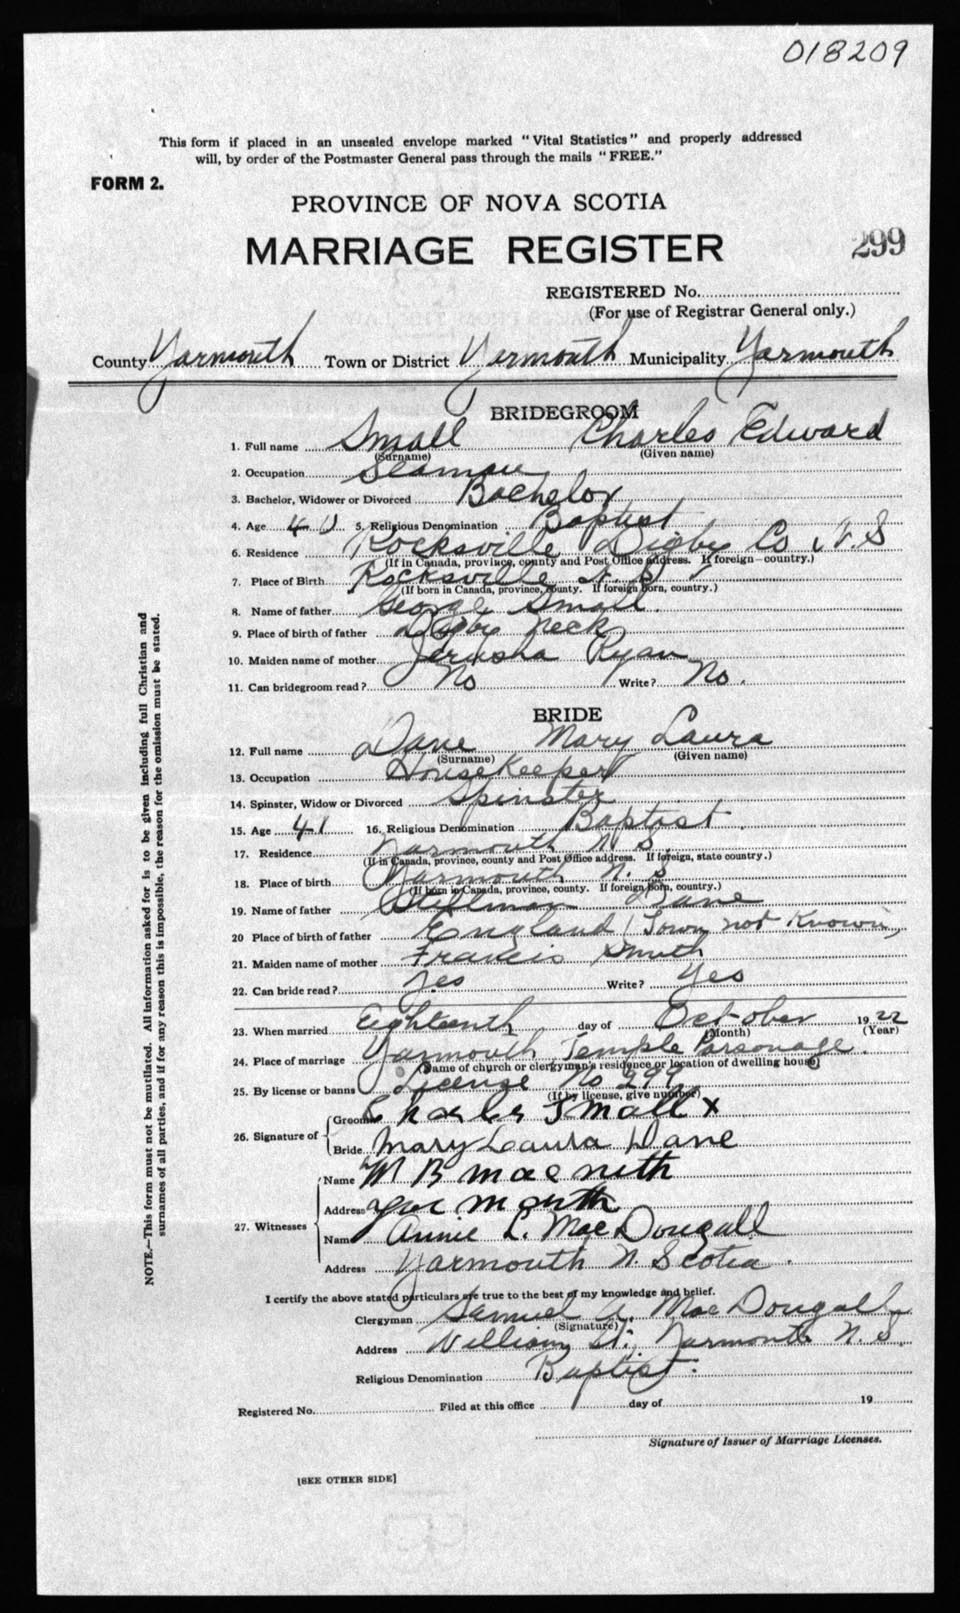 018209
This form if placed in an unsealed envelope marked "Vital Statistics" and properly addressed
will, by order of the Postmaster General pass through the mails "FREE."
FORM 2.
PROVINCE OF NOVA SCOTIA
MARRIAGE REGISTER
299
REGISTERED No.
(For use of Registrar General only.)
County Yarmouth Town or District Yarmouth Municipality Yarmouth
BRIDEGROOM
1. Full name Small Charles Edward
(Surname) (Given name)
2. Occupation Seaman
3. Bachelor, Widower or Divorced Bachelor
4. Age 40 5. Religious Denomination Baptist
6. Residence Rocksville Digby Co N.S
(If in Canada, province, county and Post Office address. If foreign—country.)
7. Place of Birth Rocksville N.S
(If born in Canada, province, county. If foreign born, country.)
8. Name of father George Small.
9. Place of birth of father Digby neck
10. Maiden name of mother Jerusha Ryan
11. Can bridegroom read? No Write? No.
BRIDE
12. Full name Dane Mary Laura
(Surname) (Given name)
13. Occupation HouseKeeper
14. Spinster, Widow or Divorced Spinster
15. Age 41 16. Religious Denomination Baptist.
17. Residence Yarmouth N.S.
(If in Canada, province, county and Post Office address. If foreign, state country.)
18. Place of birth Yarmouth N.S
(If born in Canada, province, county. If foreign born, country.)
19. Name of father Stillman Dane
20 Place of birth of father England (Town not Known)
21. Maiden name of mother Francis Smith
22. Can bride read? Yes Write? Yes
23. When married Eighteenth day of October 1922
(Month) (Year)
24. Place of marriage Yarmouth, Temple Parsonage.
(Name of church or clergyman's residence or location of dwelling house)
25. By license or banns License No 299
(If by license, give number)
26. Signature of Groom Charles Small x
Bride Mary Laura Dane
27. Witnesses Name M B macneth
Address yarmouth
Name Annie L. MacDougall
Address Yarmouth N. Scotia.
I certify the above stated particulars are true to the best of my knowledge and belief.
Clergyman Samuel A. MacDougall
(Signature)
Address William St., Yarmouth N.S.
Religious Denomination Baptist.
Registered No. Filed at this office day of 19
Signature of Issuer of Marriage Licenses.
[SEE OTHER SIDE]
NOTE.—This form must not be mutilated. All information asked for is to be given including full Christian and
surnames of all parties, and if for any reason this is impossible, the reason for the omission must be stated.